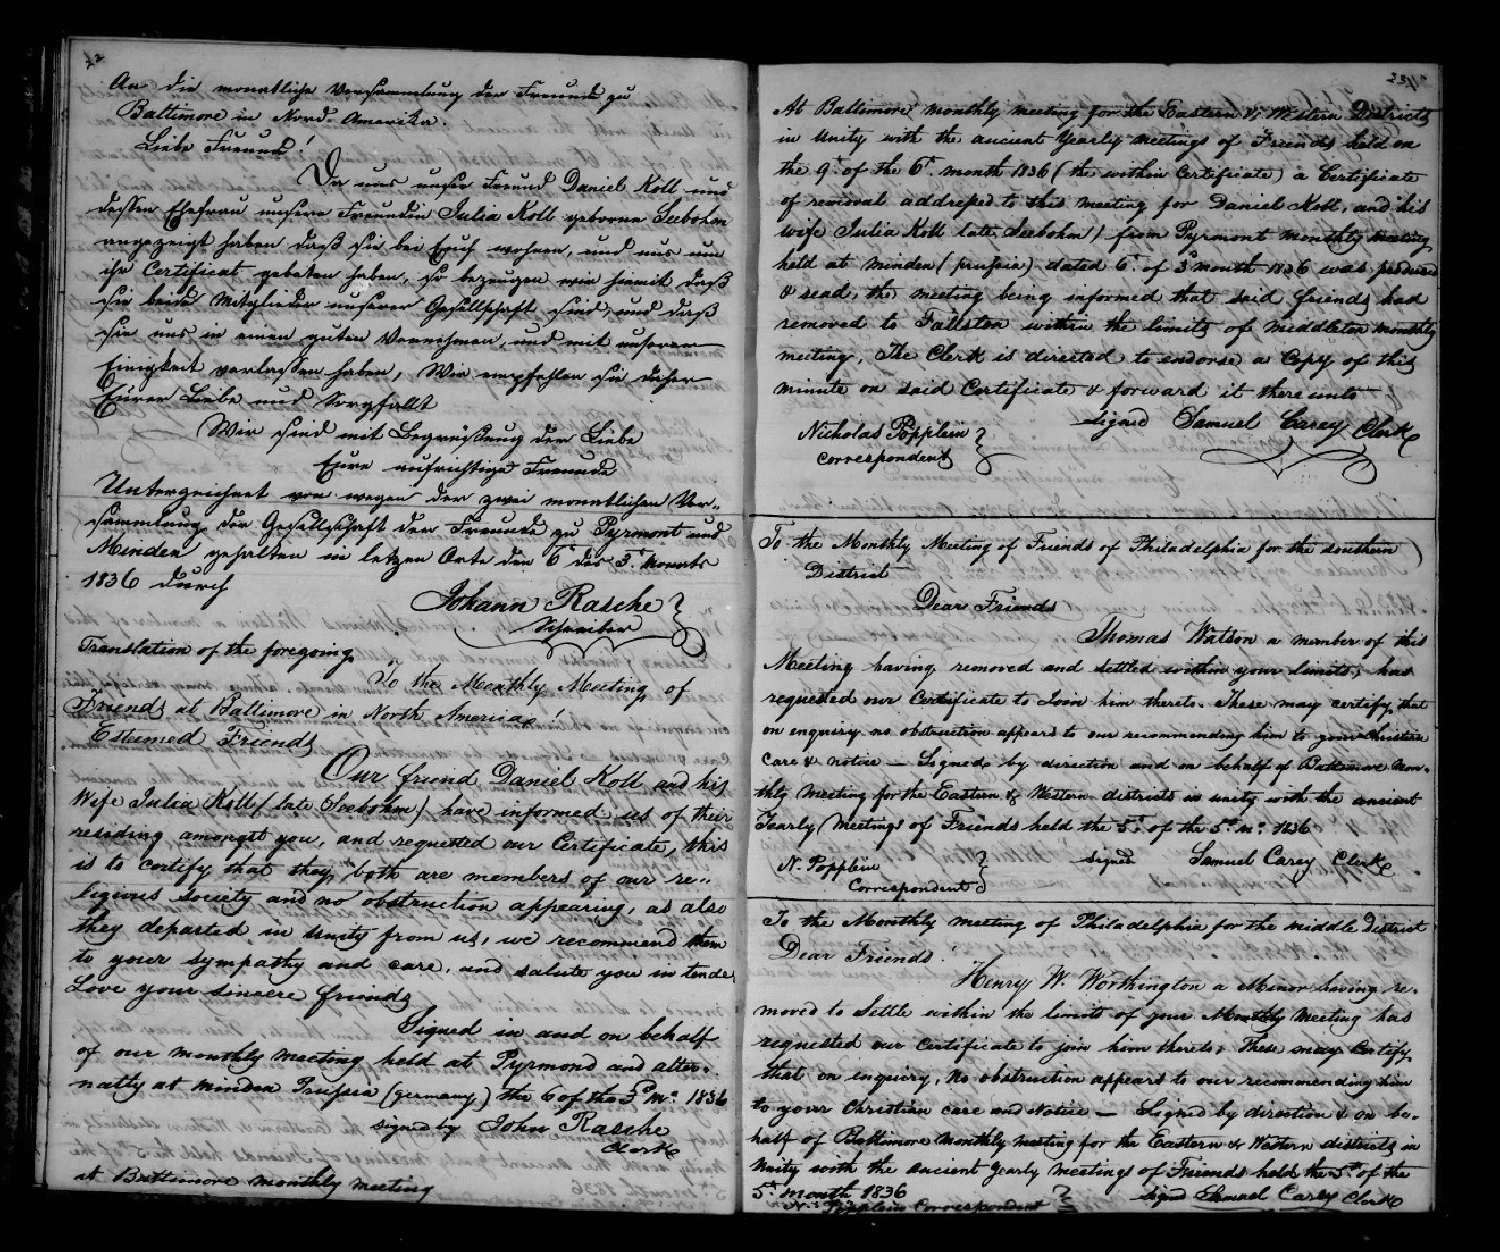 An die monatliche Versammlung der Freunde zu
Baltimore in Nord-Amerika.
Liebe Freunde!
Da uns unser Freund Daniel Koll und
dessen Ehefrau unsere Freundin Julia Koll geborne Seebohm
angezeigt haben daß sie bei Euch wohnen, und uns um
ihr Certificat gebeten haben, so bezeugen wir hiemit daß
sie beide Mitglieder unserer Gesellschaft sind, und daß
sie uns in einen guten Vernehmen, und mit unserer
Einigkeit verlassen haben, Wir empfehlen sie daher
Eurer Liebe und Sorgfallt
Wir sind mit Begrüßung der Liebe
Eure aufrichtige Freunde
Unterzeichnet von wegen der zwei monatlichen Ver-
sammlung der Gesellschaft der Freunde zu Pyrmont und
Minden gehalten in letzen Orte den 6t des 3t Monats
1836 durch
Johann Rasche
Schreiber
Translation of the foregoing
To the Monthly Meeting of
Friends at Baltimore in North America!
Esteemed Friends
Our friend Daniel Koll and his
Wife Julia Koll (late Seebohm) have informed us of their
residing amongst you, and requested our Certificate, this
is to certify that they both are members of our re-
ligious society and no obstruction appearing, as also
they departed in unity from us, we recommend them
to your sympathy and care, and salute you in tender
Love your sincere friends
Signed in and on behalf
of our monthly meeting held at Pyrmond and alter-
natly at Minden Prussia (Germany) the 6 of the 3d mo. 1836
signed by John Rasche
Clerk
at Baltimore monthly meeting
At Baltimore monthly meeting for the Eastern & Western Districts
in Unity with the ancient Yearly meetings of Friends held on
the 9t of the 6t month 1836 (the within Certificate) a Certificate
of removal addressed to this meeting for Daniel Koll, and his
wife Julia Koll (late Seebohm) from Pyrmont monthly meeting
held at Minden (prussia) dated 6t of 3d month 1836 was produced
& read, the meeting being informed that said friends had
removed to Fallston within the limits of Middleton monthly
meeting, The Clerk is directed to endorse a Copy of this
minute on said Certificate & forward it there unto
Signed Samuel Carey Clerk
Nicholas Popplein
Correspondent
To the Monthly Meeting of Friends of Philadelphia for the southern
District
Dear Friends
Thomas Watson a member of this
Meeting having removed and settled within your limits, has
requested our Certificate to Join him thereto. These may certify that
on enquiry no obstruction appears to our recommending him to your Christian
Care & notice — Signed by direction and on behalf of Baltimore Mon-
thly Meeting for the Eastern & Western districts in unity with the ancient
Yearly Meetings of Friends held the 5t of the 5t mo. 1836
signed Samuel Carey Clerk
N. Popplein
Correspondent
To the Monthly meeting of Philadelphia for the middle District
Dear Friends
Henry W. Worthington a Minor having re-
moved to Settle within the limits of your Monthly Meeting has
requested our Certificate to join him thereto, These may Certify
that on enquiry, No obstruction appears to our recommending him
to your Christian care and Notice — Signed by direction & on be-
half of Baltimore Monthly Meeting for the Eastern & Western districts in
Unity with the ancient Yearly Meetings of Friends held the 5t of the
5t month 1836
signed Samuel Carey Clerk
N. Popplein Correspondent